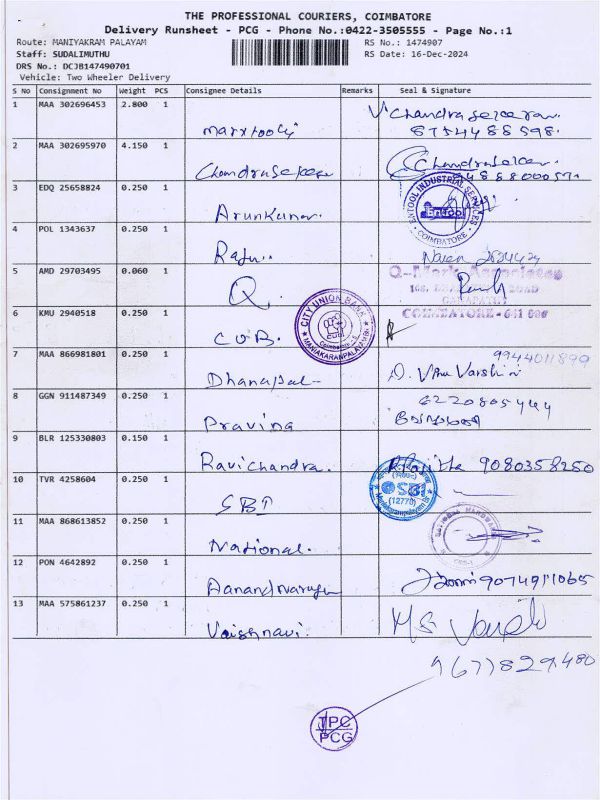 THE PROFESSIONAL COURIERS, COIMBATORE
Delivery Runsheet - PCG - Phone No.:0422-3505555 - Page No.:1
Route: MANIYAKRAM PALAYAM RS No.: 1474907
Staff: SUDALIMUTHU RS Date: 16-Dec-2024
DRS No.: DCJB147490701
Vehicle: Two Wheeler Delivery
S No Consignment No Weight PCS Consignee Details Remarks Seal & Signature
1 MAA 302696453 2.800 1 Chandrasekaran
8754488598.
2 MAA 302695970 4.150 1 Chandrasekar Chandrasekar
3 EDQ 25658824 0.250 1 Arunkumar. ENTOOL INDUSTRIAL SERVICES Entool COIMBATORE
4 POL 1343637 0.250 1 Raju..
5 AMD 29703495 0.060 1 Q. Q-Mark Associates
ROAD
GANAPATHY
COIMBATORE - 641 006
6 KMU 2940518 0.250 1 CUB. CITY UNION BANK CUB Coimbatore MANIAKARANPALAYAM
7 MAA 866981801 0.250 1 Dhanapal 9944011899
D. Vanu Varshini
8 GGN 911487349 0.250 1 Pravina 6220805444
9 BLR 125330803 0.150 1 Ravichandra. 9080358250
10 TVR 4258604 0.250 1 SBI SBI (12770)
11 MAA 868613852 0.250 1 National. NATIONAL HARDWARE
12 PON 4642892 0.250 1
13 MAA 575861237 0.250 1 Vaishnavi.
TPC
PCG